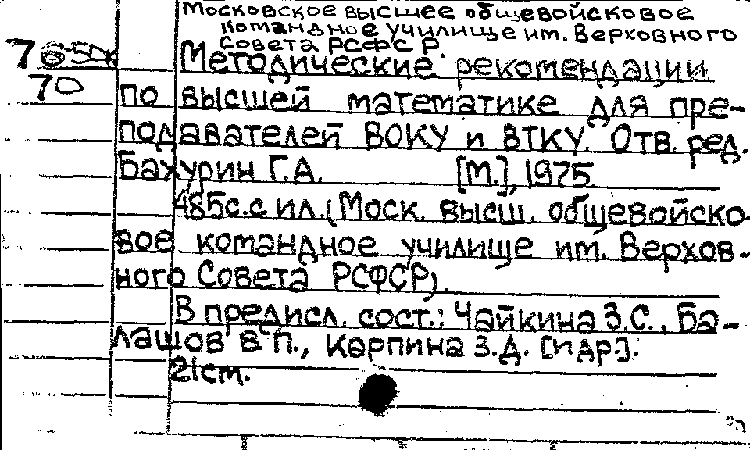 Московское высшее общевойсковое
командное училище им. Верховного
Совета РСФСР.
Методические рекомендации
70
по высшей математике для пре-
подавателей ВОКУ и ВТКУ. Отв. ред.
Бахурин Г.А. [М.], 1975.
485с. с ил. (Моск. высш. общевойско-
вое командное училище им. Верхов-
ного Совета РСФСР).
В предисл. сост.: Чайкина З.С., Ба-
лашов В.П., Карпина З.Д. [и др.].
21 см.